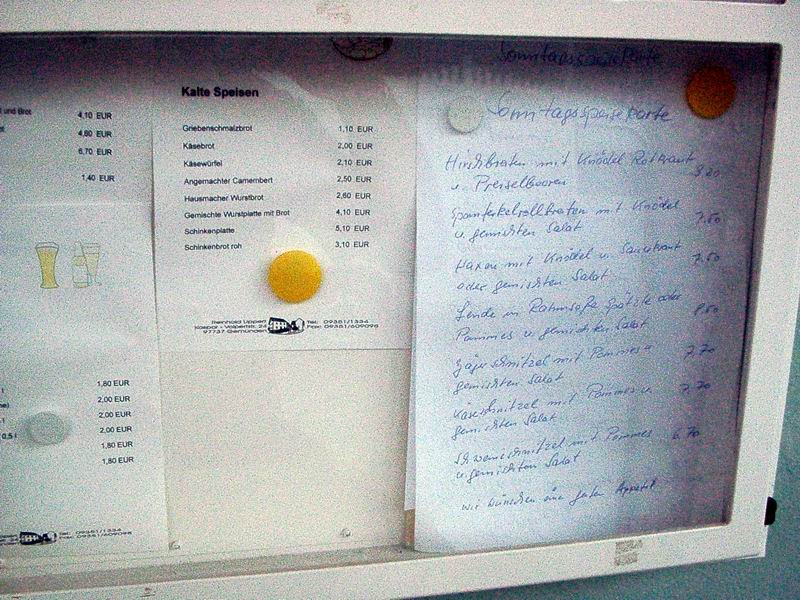 und Brot 4,10 EUR
4,80 EUR
6,70 EUR
1,40 EUR
1,80 EUR
2,00 EUR
2,00 EUR
0,5 l 2,00 EUR
1,80 EUR
1,80 EUR
Tel: 09351/1334
Fax: 09351/609098
Kalte Speisen
Griebenschmalzbrot 1,10 EUR
Käsebrot 2,00 EUR
Käsewürfel 2,10 EUR
Angemachter Camembert 2,50 EUR
Hausmacher Wurstbrot 2,60 EUR
Gemischte Wurstplatte mit Brot 4,10 EUR
Schinkenplatte 5,10 EUR
Schinkenbrot roh 3,10 EUR
Reinhold Lippert
97737 Gemünden
Tel: 09351/1334
Fax: 09351/609098
Sonntagsspeisekarte
Sonntagsspeisekarte
Hirschbraten mit Knödel Rotkraut
u. Preiselbeeren 9.20
Spanferkelrollbraten mit Knödel
u. gemischten Salat 7.50
Haxen mit Knödel u. Sauerkraut
oder gemischten Salat 7.50
Lende in Rahmsoße Spätzle oder
Pommes u. gemischten Salat 8.50
Jägerschnitzel mit Pommes u
gemischten Salat 7.70
Käseschnitzel mit Pommes u
gemischten Salat 7.70
Schweineschnitzel mit Pommes
u. gemischten Salat 6.70
wir wünschen ein guten Appetit